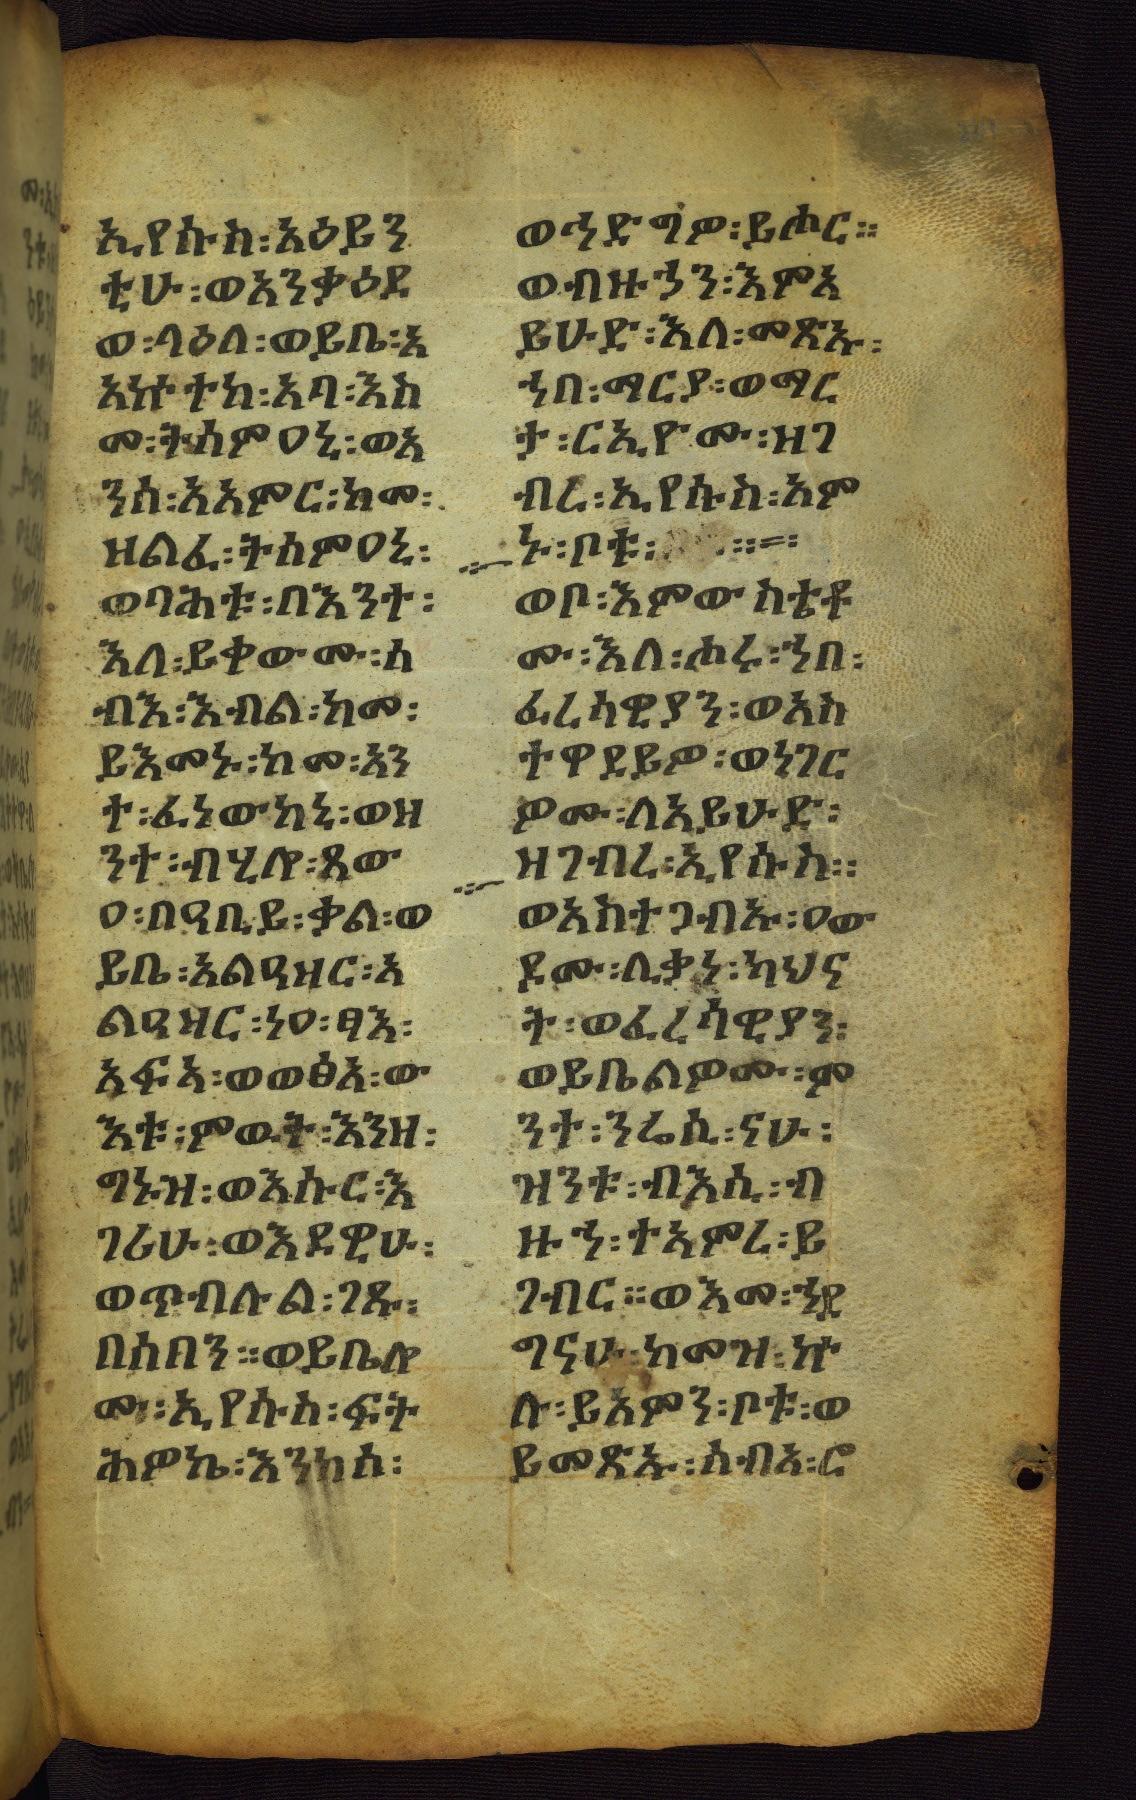 ኢየሱስ፡አዕይን
ቲሁ፡ወአንቃዕደ
ወ፡ላዕለ፡ወይቤ፡አ
አኰተከ፡አባ፡እስ
መ፡ትሰምዐኒ፡ወአ
ንሰ፡አአምር፡ከመ፡
ዘልፈ፡ትሰምዐኒ፡
ወባሕቱ፡በእንተ፡
እለ፡ይቀውሙ፡ሰ
ብእ፡እብል፡ከመ፡
ይእመኑ፡ከመ፡አን
ተ፡ፈነውከኒ፡ወዘ
ንተ፡ብሂሎ፡ጸው
ዐ፡በዓቢይ፡ቃል፡ወ
ይቤ፡አልዓዝር፡አ
ልዓዛር፡ነዐ፡ፃእ፡
አፍአ፡ወወፅአ፡ው
እቱ፡ምዉት፡እንዘ፡
ግኑዝ፡ወእሱር፡እ
ገሪሁ፡ወእደዊሁ፡
ወጥብሉል፡ገጹ፡
በሰበን።ወይቤሎ
ሙ፡ኢየሱስ፡ፍት
ሕዎኬ፡እንከሰ፡
ወኅድግዎ፡ይሖር።
ወብዙኃን፡እምአ
ይሁድ፡እለ፡መጽኡ፡
ኀበ፡ማርያ፡ወማር
ታ፡ርኢዮሙ፡ዘገ
ብረ፡ኢየሱስ፡አም
ኑ፡ቦቱ፡።=፡
ወቦ፡እምውስቴቶ
ሙ፡እለ፡ሖሩ፡ኀበ፡
ፈሪሳዊያን፡ወአስ
ተዋደይዎ፡ወነገር
ዎሙ፡ለአይሁድ፡
ዘገብረ፡ኢየሱስ።
ወአስተጋብኡ፡ዐው
ደሙ፡ሊቃነ፡ካህና
ት፡ወፈሪሳዊያን፡
ወይቤልዎሙ፡ም
ንተ፡ንሬሲ፡ናሁ፡
ዝንቱ፡ብእሲ፡ብ
ዙኀ፡ተአምረ፡ይ
ገብር።ወእመ፡ኀደ
ግናሁ፡ከመዝ፡ኵ
ሉ፡ይአምን፡ቦቱ፡ወ
ይመጽኡ፡ሰብአ፡ሮ